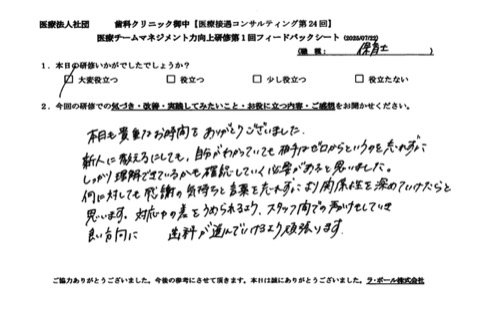 医療法人社団　　歯科クリニック御中【医療接遇コンサルティング第24回】
医療チームマネジメント力向上研修第1回フィードバックシート（2025/07/22）
（職種： 保育士 ）
1．本日の研修いかがでしたでしょうか？
□ 大変役立つ　□ 役立つ　□ 少し役立つ　□ 役立たない
2．今回の研修での気づき・改善・実践してみたいこと・お役に立つ内容・ご感想をお聞かせください。
本日も貴重なお時間をありがとうございました。
新人に教えるにしても、自分がわかっていても相手はゼロからというのを忘れずに
しっかり理解できているかも確認していく必要があると思いました。
何に対しても感謝の気持ちと言葉を忘れずに より関係性を深めていけたらと
思います。対応力の差をうめられるよう、スタッフ間での声かけをしていき
良い方向に 歯科が進んでいけるよう頑張ります。
ご協力ありがとうございました。今後の参考にさせて頂きます。本日は誠にありがとうございました。ラ・ポール株式会社